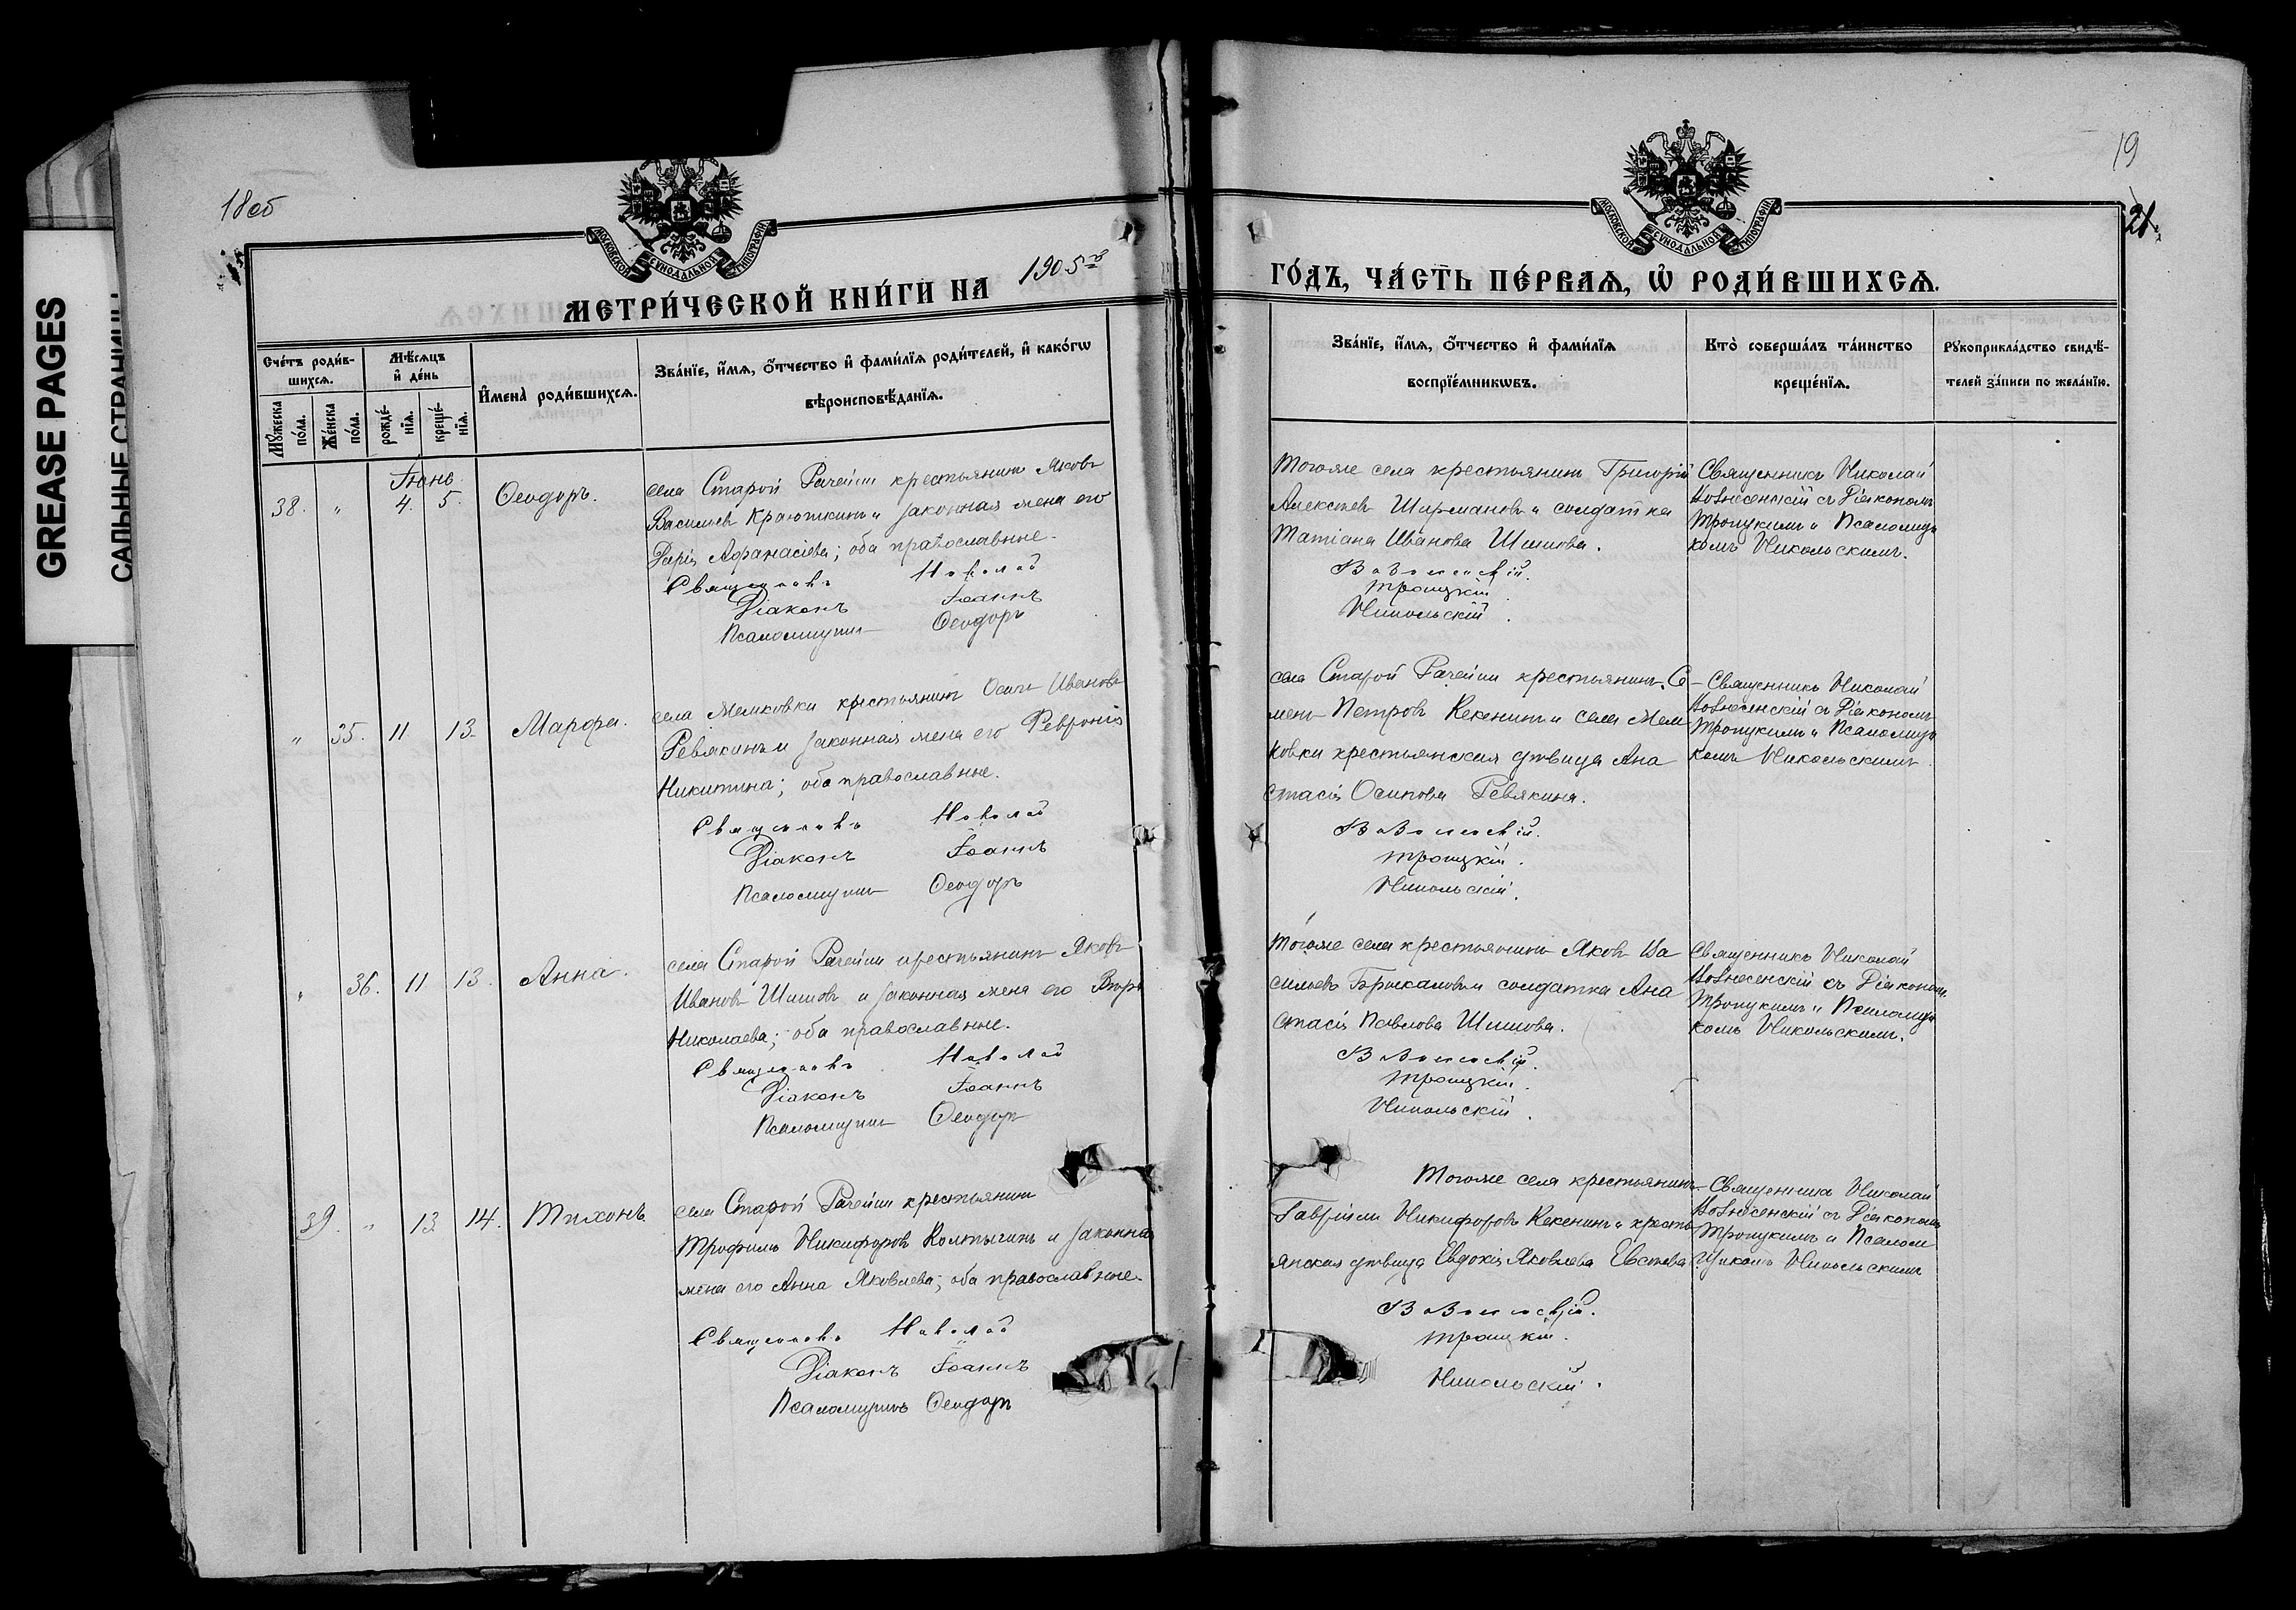 GREASE PAGES
САЛЬНЫЕ СТРАНИЦЫ
18об
19
21.
МОСКОВСКОЙ СУНОДАЛЬНОЙ ТИПОГРАФІИ
МОСКОВСКОЙ СУНОДАЛЬНОЙ ТИПОГРАФІИ
МЕТРИ́ЧЕСКОЙ КНИ́ГИ НА 1905й
ГО́ДЪ, ЧА́СТЬ ПЕ́РВАѦ, Ѡ҆ РОДИ́ВШИХСѦ.
Сче́тъ роди́в-
шихсѧ.
Мѣ́сѧцъ
и҆ де́нь
Мꙋ́жеска
по́ла.
Же́нска
по́ла.
рожде́-
нїѧ.
креще́-
нїѧ.
И҆мена̀ роди́вшихсѧ.
Зва́нїе, и҆́мѧ, ѻ҆́тчество и҆ фами́лїѧ роди́телей, и҆ како́гѡ
вѣроисповѣ́данїѧ.
Зва́нїе, и҆́мѧ, ѻ҆́тчество и҆ фами́лїѧ
воспрїе́мникѡвъ.
Кто̀ соверша́лъ та́инство
креще́нїѧ.
Рꙋкоприкла́дство свидѣ́-
телей за́писи по жела́нїю.
Іюнь
38. " 4. 5. Ѳеодоръ.
села Старой Рачейки крестьянинъ Яковъ
Васильевъ Краюшкинъ и законная жена его
Дарія Афанасіева; оба православные.
Священникъ Николай
Діаконъ Іоаннъ
Псаломщикъ Ѳеодоръ
Тогоже села крестьянинъ Григорій
Алексѣевъ Ширмановъ и солдатка
Татіана Иванова Шишова.
Вознесенскій.
Троицкій
Никольскій.
Священникъ Николай
Вознесенскій съ Діакономъ
Троицкимъ и Псаломщи
комъ Никольскимъ.
" 35. 11. 13. Марфа.
села Межковки крестьянинъ Осипъ Ивановъ
Ревякинъ и законная жена его Февронія
Никитина; оба православные.
Священникъ Николай
Діаконъ Іоаннъ
Псаломщикъ Ѳеодоръ
села Старой Рачейки крестьянинъ Се-
менъ Петровъ Кекенинъ и села Меж
ковки крестьянская дѣвица Ана
стасія Осипова Ревякина.
Вознесенскій.
Троицкій.
Никольскій.
Священникъ Николай
Вознесенскій съ Діакономъ
Троицкимъ и Псаломщи
комъ Никольскимъ
" 36. 11 13. Анна.
села Старой Рачейки крестьянинъ Яковъ
Ивановъ Шишовъ и законная жена его Вѣра
Николаева; оба православные.
Священникъ Николай
Діаконъ Іоаннъ
Псаломщикъ Ѳеодоръ
Тогоже села крестьянинъ Яковъ Ва
сильевъ Брыкаловъ и солдатка Ана
стасія Павлова Шишова.
Вознесенскій.
Троицкій.
Никольскій.
Священникъ Николай
Вознесенскій съ Діакономъ
Троицкимъ и Псаломщи
комъ Никольскимъ.
39. " 13 14. Тихонъ.
села Старой Рачейки крестьянинъ
Трофимъ Никифоровъ Колтычинъ и законная
жена его Анна Яковлева; оба православные.
Священникъ Николай
Діаконъ Іоаннъ
Псаломщикъ Ѳеодоръ
Тогоже села крестьянинъ
Гавріилъ Никифоровъ Кекенинъ и кресть
янская дѣвица Евдокія Яковлева Евстева
Вознесенскій.
Троицкій.
Никольскій.
Священникъ Николай
Вознесенскій съ Діакономъ
Троицкимъ и Псалом
щикомъ Никольскимъ